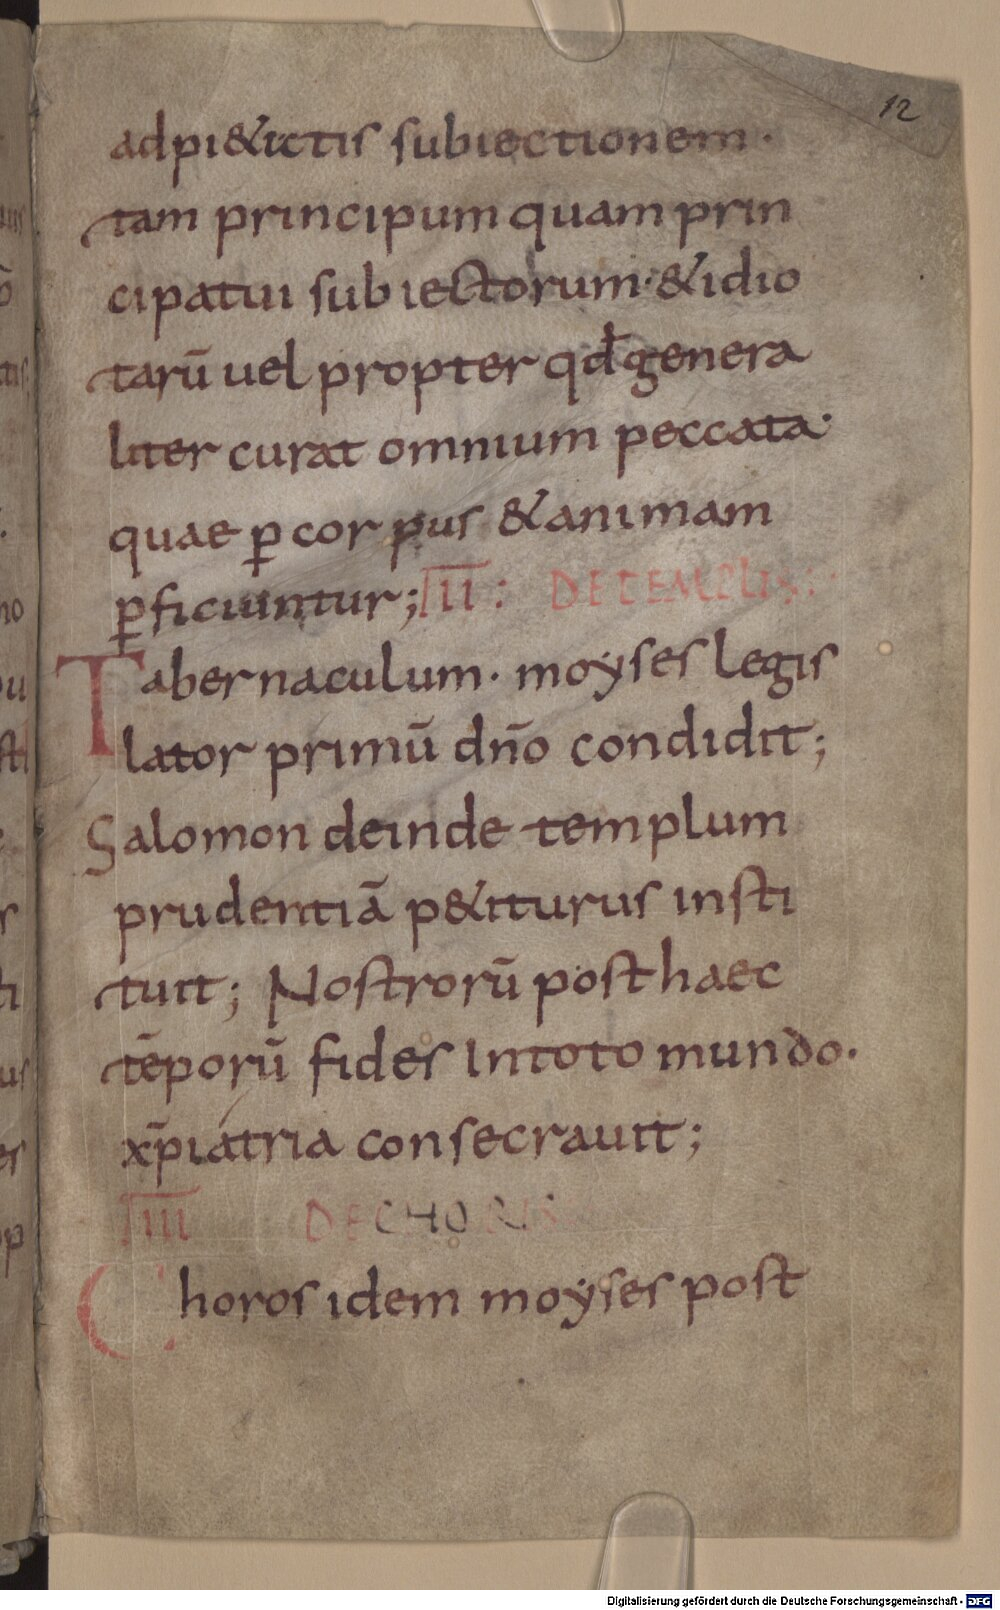 12
adpi&ictis subiectionem·
tam principum quam prin
cipatui subiectorum·&idio
tarū uel propter qđ genera
liter curat omnium peccata·
quae ꝑ corpus &animam
ꝑficiuntur; III: DETEMPLIS:
Tabernaculum· moyses legis
lator primū dn̄o condidit;
Salomon deinde templum
prudentiā p&iturus insti
tuit; Nostrorū posthaec
tēporū fides Intoto mundo·
xp̄i atria consecrauit;
IIII DECHORIS
Choros idem moyses post
Digitalisierung gefördert durch die Deutsche Forschungsgemeinschaft - DFG